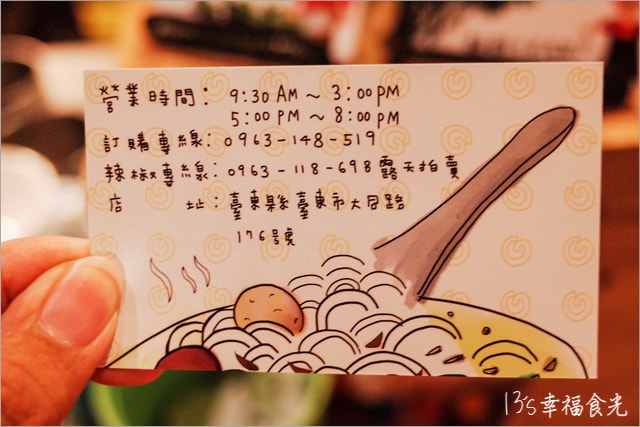 營業時間： 9:30 AM ～ 3:00 PM
5:00 PM ～ 8:00 PM
訂購專線：0963-148-519
辣椒專線：0963-118-698 露天拍賣
店 址：臺東縣臺東市大同路
176號
13's幸福食光